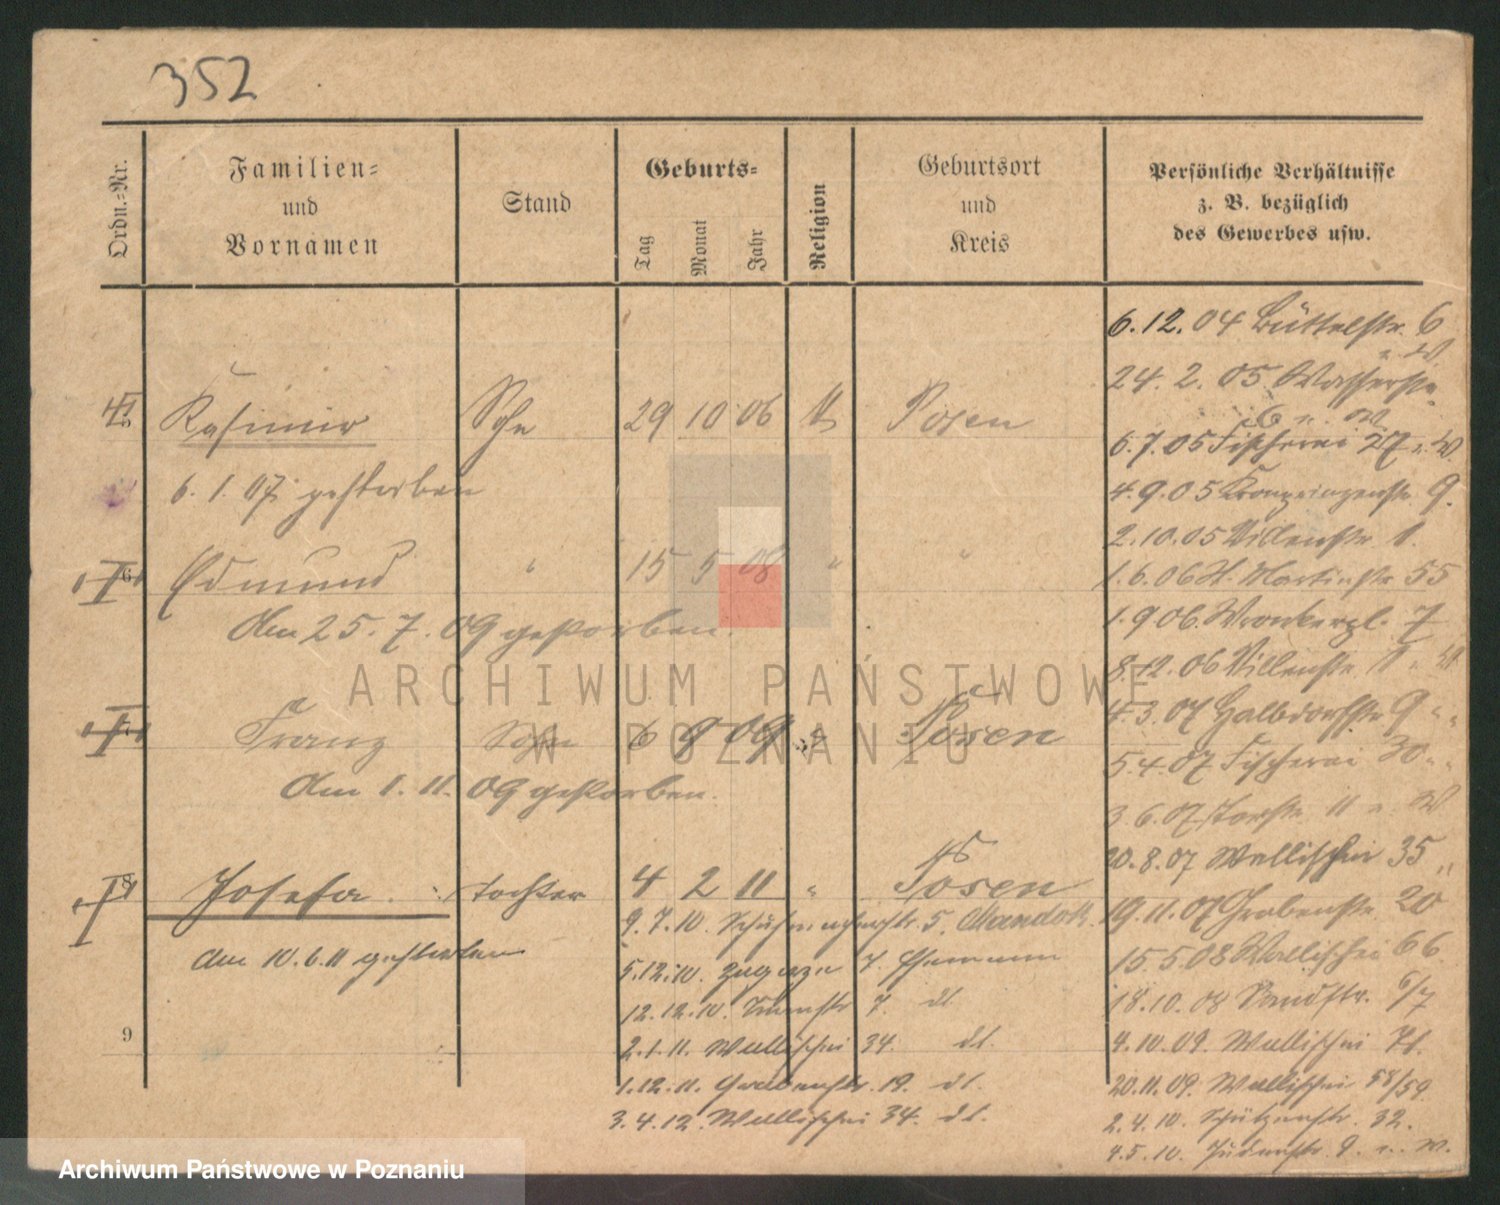 352
Ordn.=Nr.
Familien=
und
Vornamen
Stand
Geburts=
Tag
Monat
Jahr
Religion
Geburtsort
und
Kreis
Persönliche Verhältnisse
z. B. bezüglich
des Gewerbes usw.
Kasimir Sohn 29 10 06 Posen
6. 1. 07. gestorben
6 Edmund " 15 5 08 " "
Am 25. 7. 09 gestorben.
7 Franz Sohn 6 9 09 " Posen
Am 1. 11. 09 gestorben.
8 Josefa. Tochter 4 2 11 " Posen
am 10. 6. 11 gestorben
9
6. 12. 04 Büttelstr. 6
24. 2. 05. Wasserstr.
6
6. 7. 05 Fischerei 27
4. 9. 05 Kronprinzenstr. 9.
2. 10. 05 Villenstr 1.
1. 6. 06 St. Martinstr 55
1. 9 06. Wronkerpl. 7
8. 12. 06 Villenstr 1
4. 3. 07 Halbdorfstr 9 " "
5. 4. 07 Fischerei 30 " "
3. 6. 07 Torstr. 11
20. 8. 07 Wallischei 35 "
19. 11. 07 Grabenstr. 20
15. 5. 08 Wallischei 66.
18. 10. 08 Sandstr. 6/7
4. 10. 09. Wallischei 71.
20. 11. 09. Wallischei 58/59
2. 4. 10. Schützenstr. 32.
4. 5. 10. Judenstr. 9.
9. 7. 10. Schuhmacherstr. 5.
5. 12. 10. Zagorze 7.
12. 12. 10. 7. dt
2. 1. 11. Wallischei 34. dt.
1. 12. 11. Grabenstr. 19. dt.
3. 4. 12. Wallischei 34. dt.
ARCHIWUM PAŃSTWOWE
W POZNANIU
Archiwum Państwowe w Poznaniu